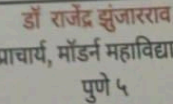 डॉ राजेंद्र झुंजारराव
प्राचार्य, मॉडर्न महाविद्या
पुणे ५